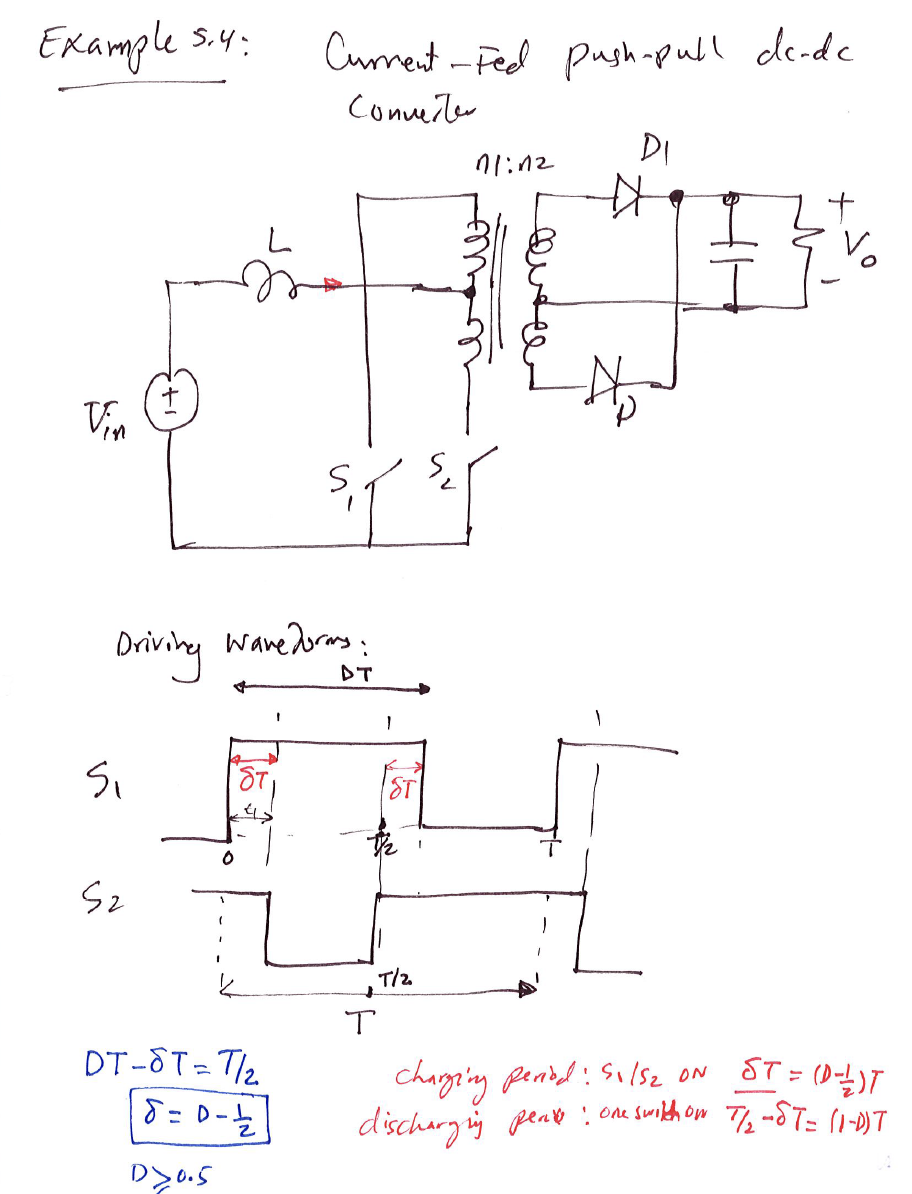 Example 5.4: Current-Fed push-pull dc-dc
Converter
n1:n2
D1
L
+
Vo
-
Vin
+
-
S1
S2
D
Driving Waveforms:
DT
S1
δT
δT
t1
0
T/2
T
S2
T/2
T
DT-δT = T/2
δ = D-1/2
D≥0.5
charging period: S1/S2 ON δT = (D-1/2)T
discharging period: one switch on T/2-δT = (1-D)T